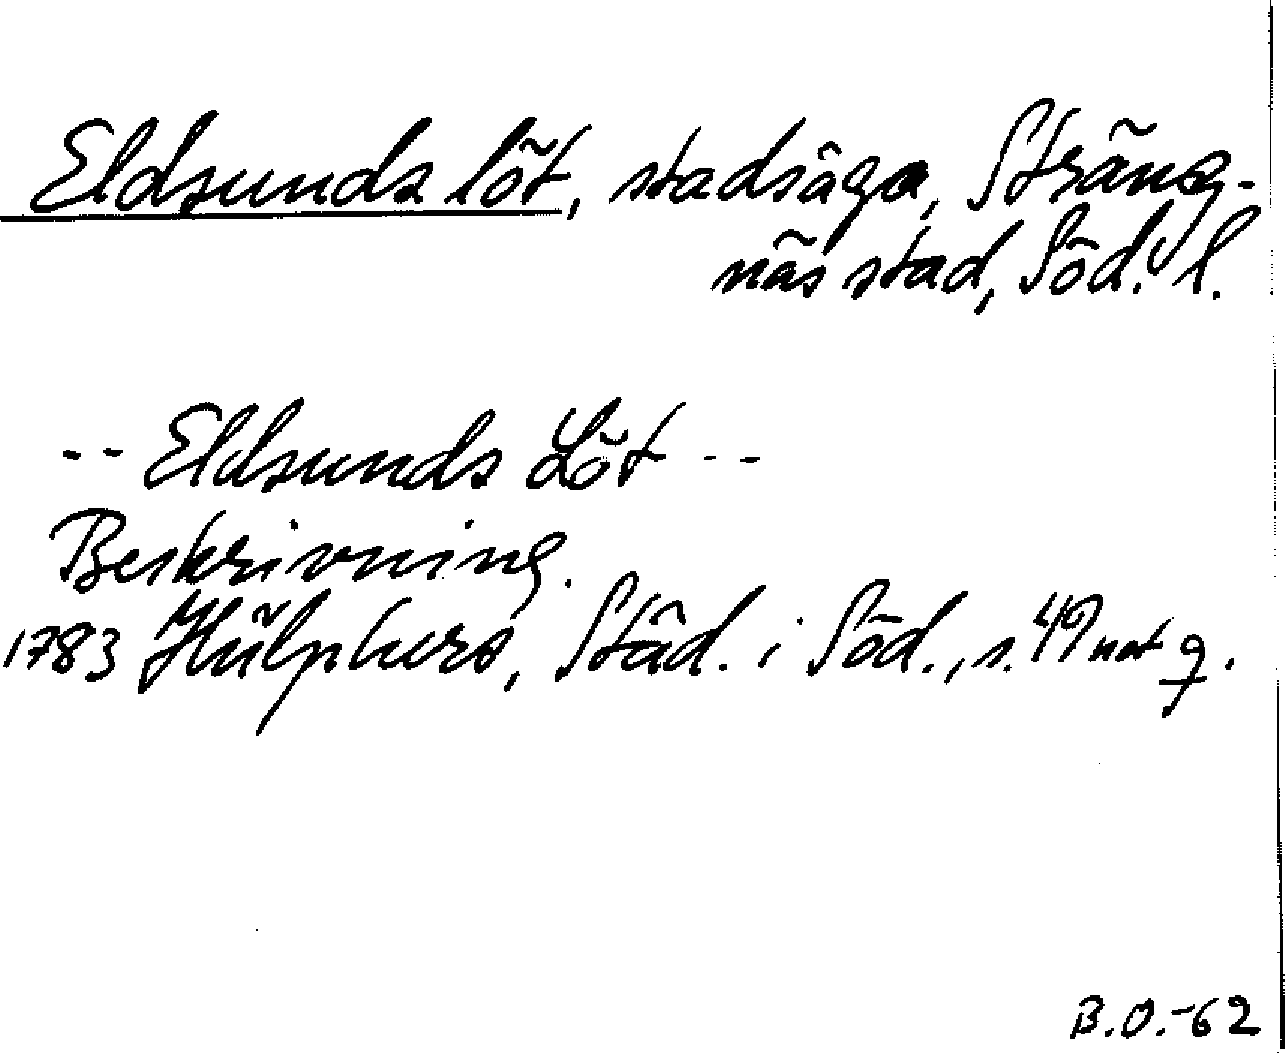 Eldsunds löt, stadsäga, Sträng-
näs stad, Söd. l.
-- Eldsunds Löt --
Beskrivning.
1783 Hülphers, Städ. i Söd., s. 49 not q.
B.O.-62